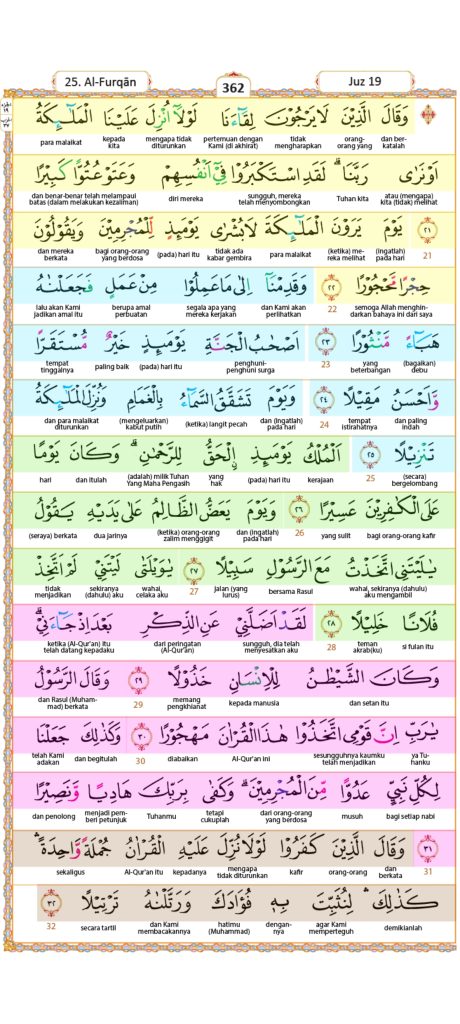 25. Al-Furqān
362
Juz 19
وَقَالَ الَّذِيْنَ لَا يَرْجُوْنَ لِقَاۤءَنَا لَوْلَآ اُنْزِلَ عَلَيْنَا الْمَلٰۤىِٕكَةُ
dan ber-katalah orang-orang yang tidak mengharapkan pertemuan dengan Kami (di akhirat) mengapa tidak diturunkan kepada kita para malaikat
اَوْ نَرٰى رَبَّنَا ۗ لَقَدِ اسْتَكْبَرُوْا فِيْٓ اَنْفُسِهِمْ وَعَتَوْ عُتُوًّا كَبِيْرًا
atau (mengapa) kita (tidak) melihat Tuhan kita sungguh, mereka telah menyombongkan diri mereka dan benar-benar telah melampaui batas (dalam melakukan kezaliman)
٢١ يَوْمَ يَرَوْنَ الْمَلٰۤىِٕكَةَ لَا بُشْرٰى يَوْمَىِٕذٍ لِّلْمُجْرِمِيْنَ وَيَقُوْلُوْنَ
21 (Ingatlah) pada hari (ketika) me-reka melihat para malaikat tidak ada kabar gembira (pada) hari itu bagi orang-orang yang berdosa dan mereka berkata
حِجْرًا مَّحْجُوْرًا ٢٢ وَقَدِمْنَآ اِلٰى مَا عَمِلُوْا مِنْ عَمَلٍ فَجَعَلْنٰهُ
semoga Allah menghin-darkan bahaya ini dari saya 22 dan Kami akan perlihatkan segala apa yang mereka kerjakan berupa amal perbuatan lalu akan Kami jadikan amal itu
هَبَاۤءً مَّنْثُوْرًا ٢٣ اَصْحٰبُ الْجَنَّةِ يَوْمَىِٕذٍ خَيْرٌ مُّسْتَقَرًّا
(bagaikan) debu yang beterbangan 23 penghuni-penghuni surga (pada) hari itu paling baik tempat tinggalnya
وَّاَحْسَنُ مَقِيْلًا ٢٤ وَيَوْمَ تَشَقَّقُ السَّمَاۤءُ بِالْغَمَامِ وَنُزِّلَ الْمَلٰۤىِٕكَةُ
dan paling indah tempat istirahatnya 24 dan (ingatlah) pada hari (ketika) langit pecah (mengeluarkan) kabut putih dan para malaikat diturunkan
تَنْزِيْلًا ٢٥ اَلْمُلْكُ يَوْمَىِٕذِ ِۨالْحَقُّ لِلرَّحْمٰنِ ۗ وَكَانَ يَوْمًا
(secara) bergelombang 25 kerajaan (pada) hari itu yang hak (adalah) milik Tuhan Yang Maha Pengasih dan itulah hari
عَلَى الْكٰفِرِيْنَ عَسِيْرًا ٢٦ وَيَوْمَ يَعَضُّ الظَّالِمُ عَلٰى يَدَيْهِ يَقُوْلُ
bagi orang-orang kafir yang sulit 26 dan (ingatlah) pada hari (ketika) orang-orang zalim menggigit dua jarinya (seraya) berkata
يٰلَيْتَنِى اتَّخَذْتُ مَعَ الرَّسُوْلِ سَبِيْلًا ٢٧ يٰوَيْلَتٰى لَيْتَنِيْ لَمْ اَتَّخِذْ
wahai, sekiranya (dahulu) aku mengambil bersama Rasul jalan (yang lurus) 27 wahai, celaka aku sekiranya (dahulu) aku tidak menjadikan
فُلَانًا خَلِيْلًا ٢٨ لَقَدْ اَضَلَّنِيْ عَنِ الذِّكْرِ بَعْدَ اِذْ جَاۤءَنِيْ ۗ
si fulan itu teman akrab(ku) 28 sungguh, dia telah menyesatkan aku dari peringatan (Al-Qur'an) ketika (Al-Qur'an) itu telah datang kepadaku
وَكَانَ الشَّيْطٰنُ لِلْاِنْسَانِ خَذُوْلًا ٢٩ وَقَالَ الرَّسُوْلُ
dan setan itu kepada manusia memang pengkhianat 29 dan Rasul (Muham-mad) berkata
يٰرَبِّ اِنَّ قَوْمِى اتَّخَذُوْا هٰذَا الْقُرْاٰنَ مَهْجُوْرًا ٣٠ وَكَذٰلِكَ جَعَلْنَا
ya Tu-hanku sesungguhnya kaumku telah menjadikan Al-Qur'an ini diabaikan 30 dan begitulah telah Kami adakan
لِكُلِّ نَبِيٍّ عَدُوًّا مِّنَ الْمُجْرِمِيْنَ ۗ وَكَفٰى بِرَبِّكَ هَادِيًا وَّنَصِيْرًا
bagi setiap nabi musuh dari orang-orang yang berdosa tetapi cukuplah Tuhanmu menjadi pem-beri petunjuk dan penolong
٣١ وَقَالَ الَّذِيْنَ كَفَرُوْا لَوْلَا نُزِّلَ عَلَيْهِ الْقُرْاٰنُ جُمْلَةً وَّاحِدَةً ۛ
31 dan berkata orang-orang kafir mengapa tidak diturunkan kepadanya Al-Qur'an itu sekaligus
كَذٰلِكَ ۛ لِنُثَبِّتَ بِهٖ فُؤَادَكَ وَرَتَّلْنٰهُ تَرْتِيْلًا ٣٢
demikianlah agar Kami memperteguh dengan-nya hatimu (Muhammad) dan Kami membacakannya secara tartil 32